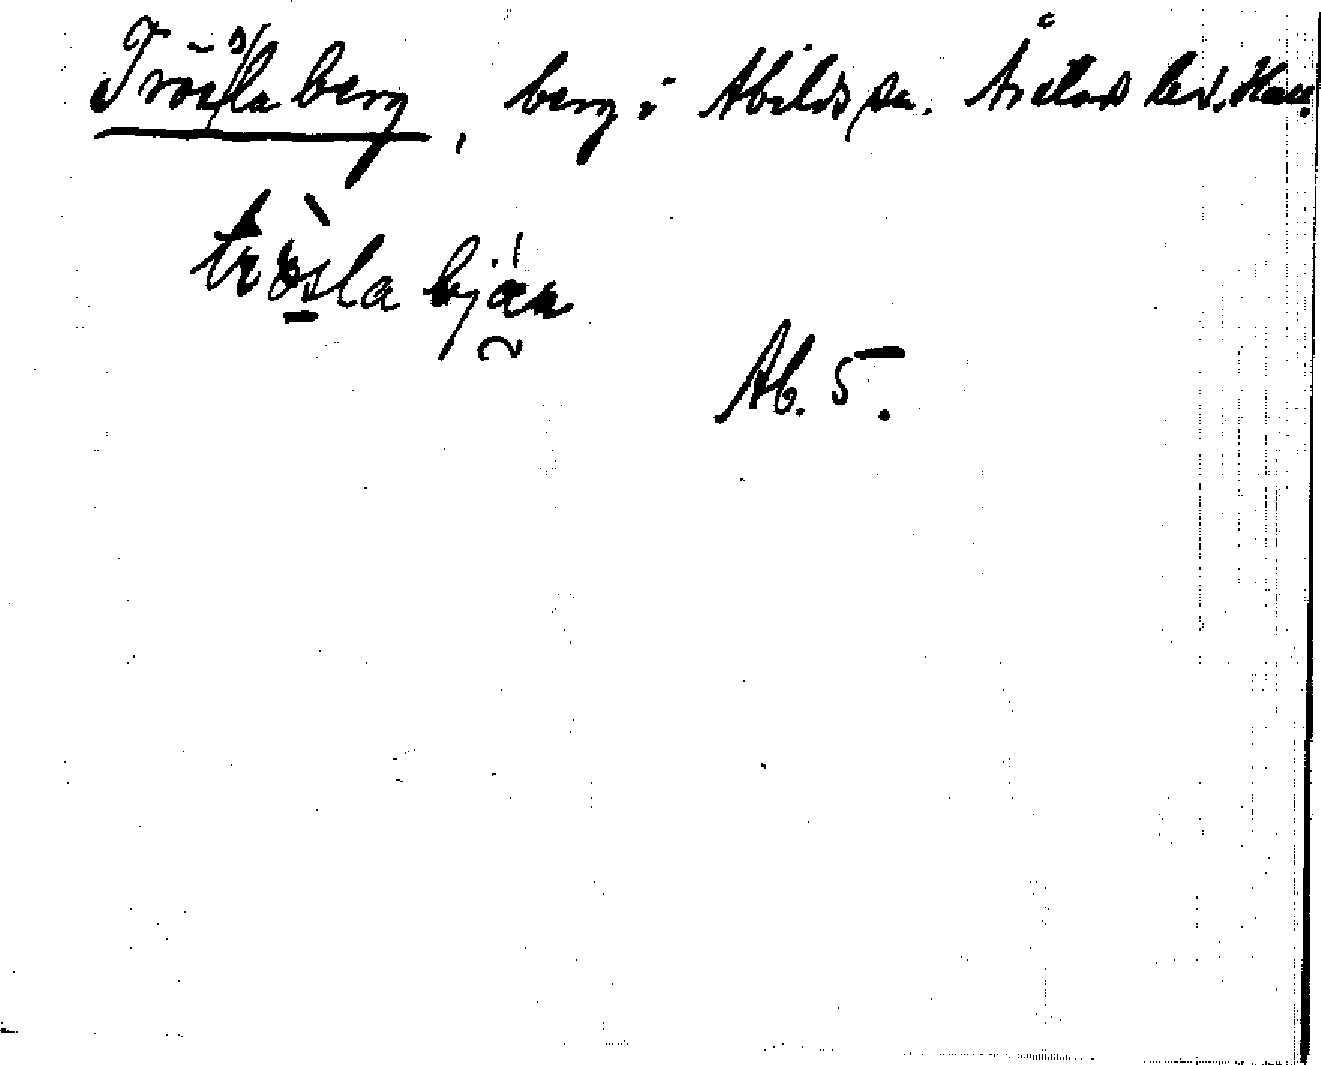 Trösslaberg, berg i Abilds sn. Årstads hd. Hall.
trösla bjär
Ab. 5.